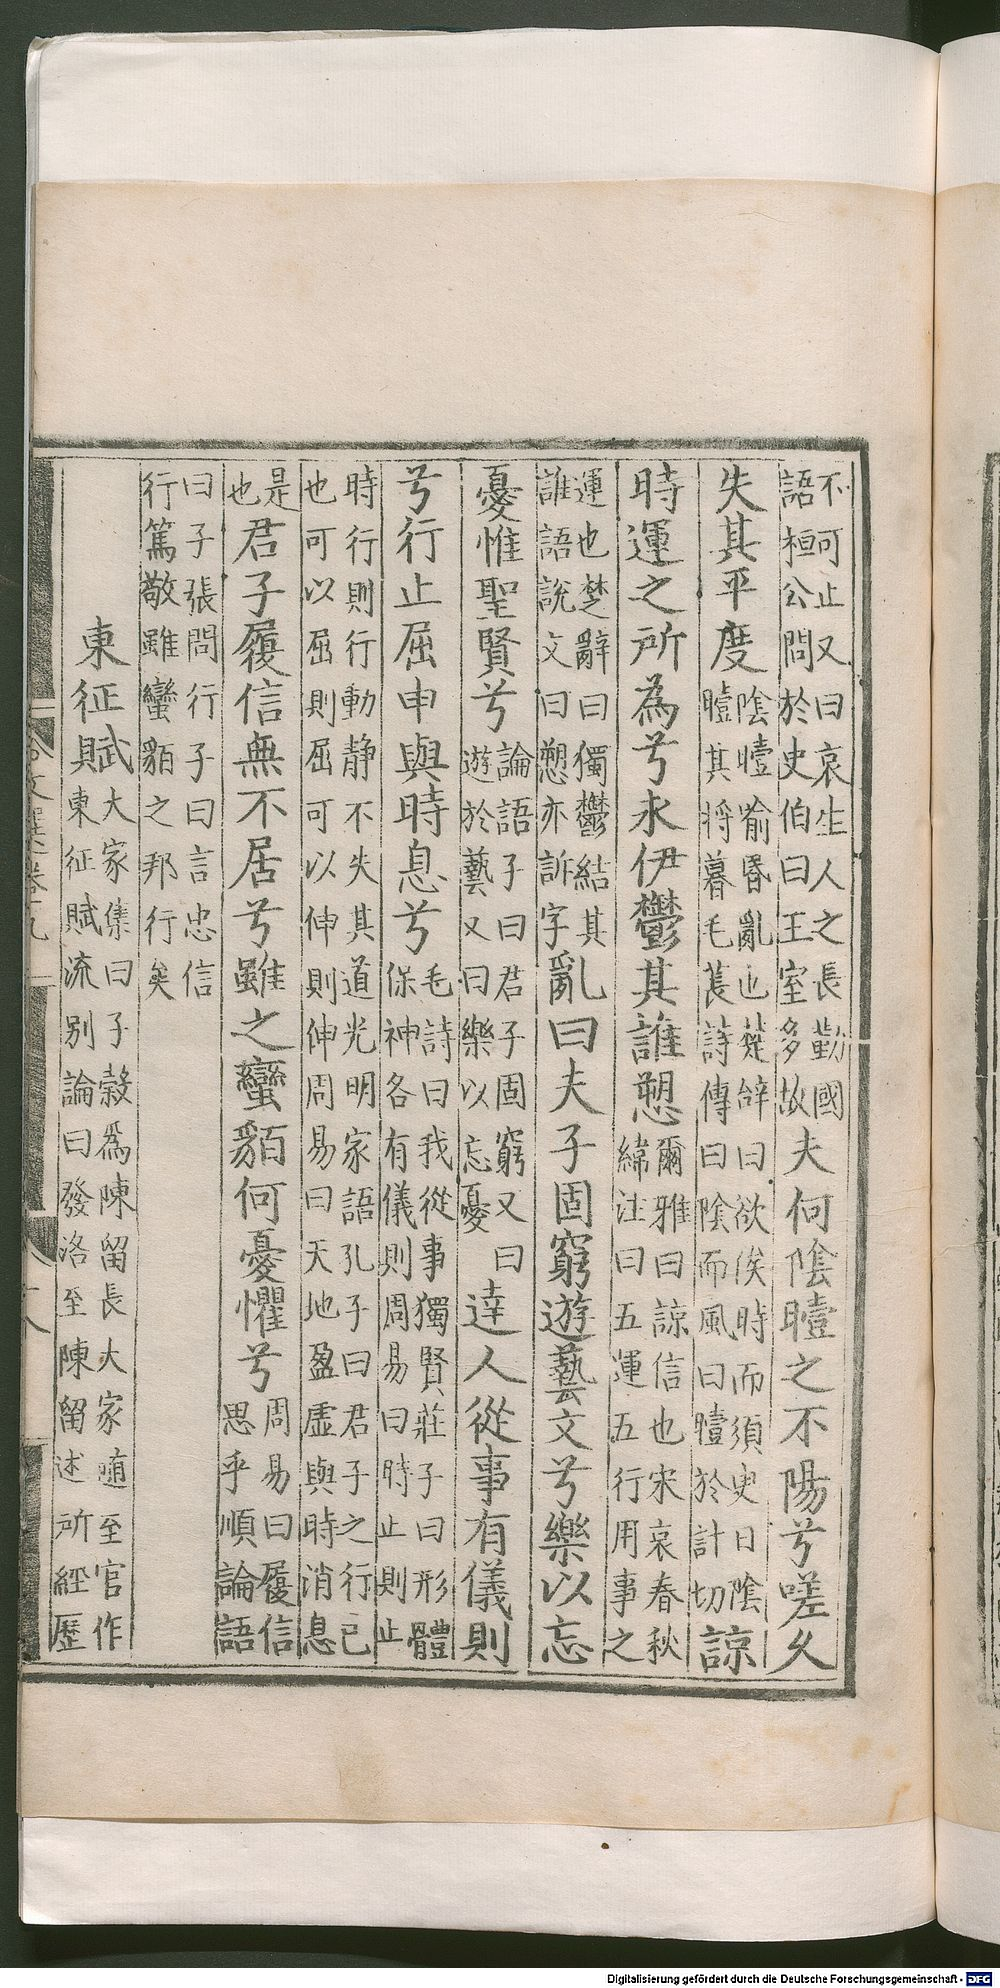 不可止又曰哀生人之長勤國語桓公問於史伯曰王室多故夫何陰曀之不陽兮嗟久
失其平度陰曀喻昏亂也楚辭曰欲俟時而須臾日陰曀其將暮毛萇詩傳曰陰而風曰曀於計切諒
時運之所為兮永伊鬱其誰愬爾雅曰諒信也宋哀春秋緯注曰五運五行用事之
運也楚辭曰獨鬱結其誰語說文曰愬亦訴字亂曰夫子固窮遊藝文兮樂以忘
憂惟聖賢兮論語子曰君子固窮又曰遊於藝又曰樂以忘憂達人從事有儀則
兮行止屈申與時息兮毛詩曰我從事獨賢莊子曰形體保神各有儀則周易曰時止則止
時行則行動靜不失其道光明家語孔子曰君子之行己也可以屈則屈可以伸則伸周易曰天地盈虛與時消息
是也君子履信無不居兮雖之蠻貊何憂懼兮周易曰履信思乎順論語
曰子張問行子曰言忠信行篤敬雖蠻貊之邦行矣
東征賦大家集曰子穀為陳留長大家隨至官作東征賦流別論曰發洛至陳留述所經歷
Digitalisierung gefördert durch die Deutsche Forschungsgemeinschaft - DFG